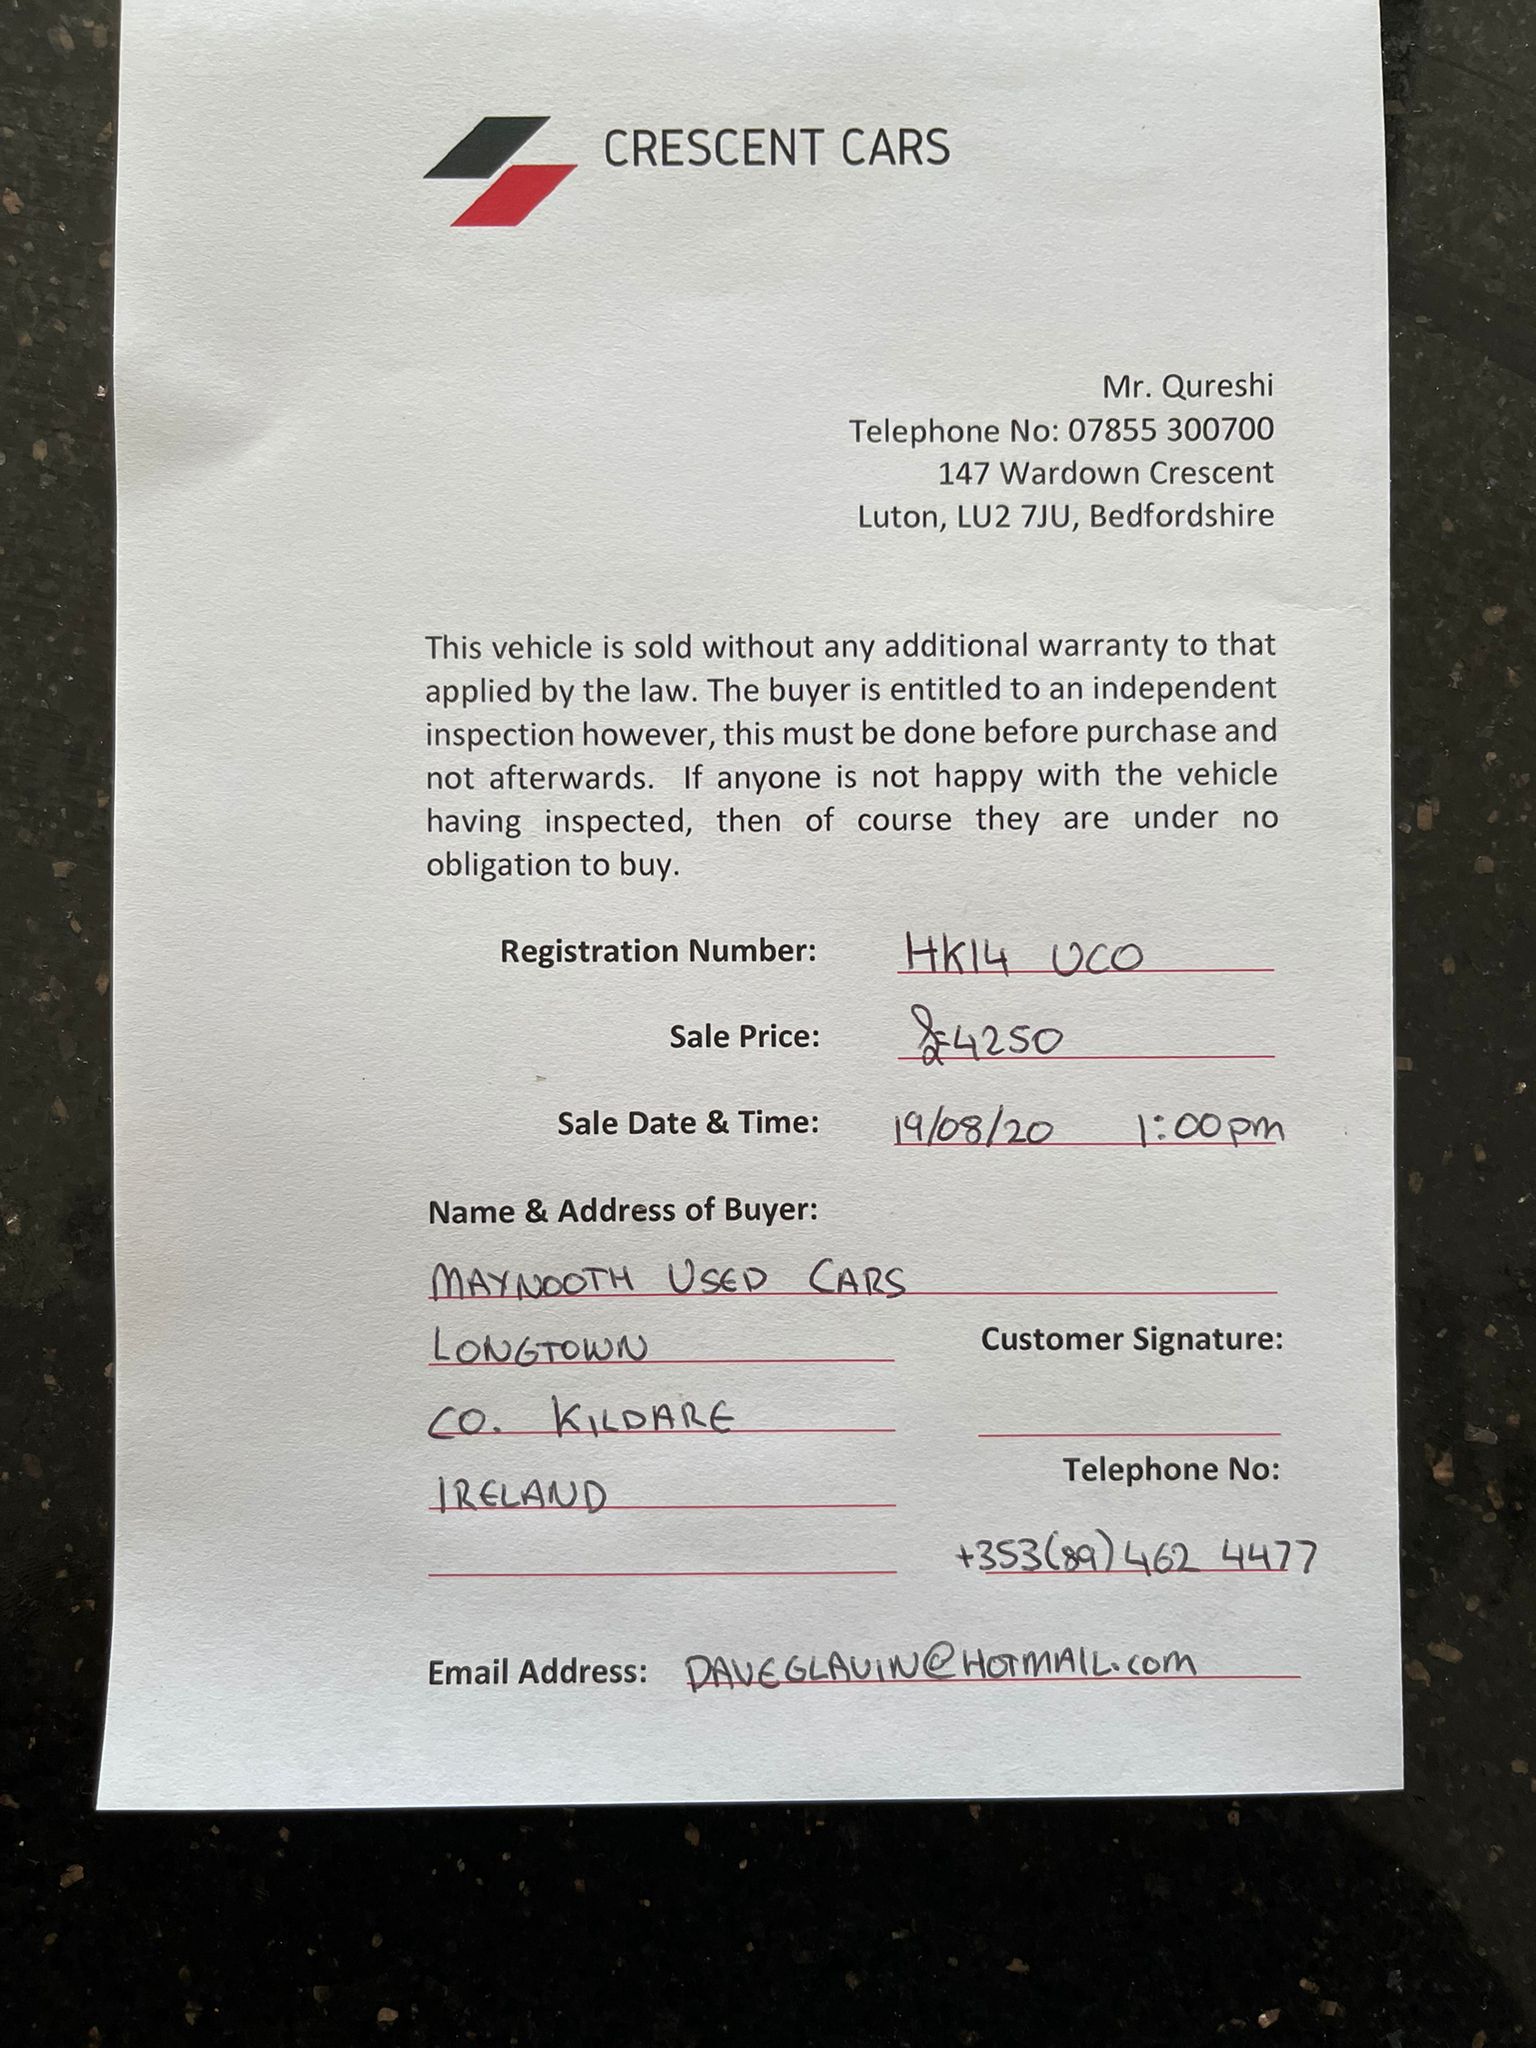 CRESCENT CARS
Mr. Qureshi
Telephone No: 07855 300700
147 Wardown Crescent
Luton, LU2 7JU, Bedfordshire
This vehicle is sold without any additional warranty to that
applied by the law. The buyer is entitled to an independent
inspection however, this must be done before purchase and
not afterwards. If anyone is not happy with the vehicle
having inspected, then of course they are under no
obligation to buy.
Registration Number: HK14 UCO
Sale Price: £4250
Sale Date & Time: 19/08/20 1:00pm
Name & Address of Buyer:
MAYNOOTH USED CARS
LONGTOWN
Customer Signature:
CO. KILDARE
IRELAND
Telephone No:
+353(89)462 4477
Email Address: DAVEGLAVIN@HOTMAIL.com